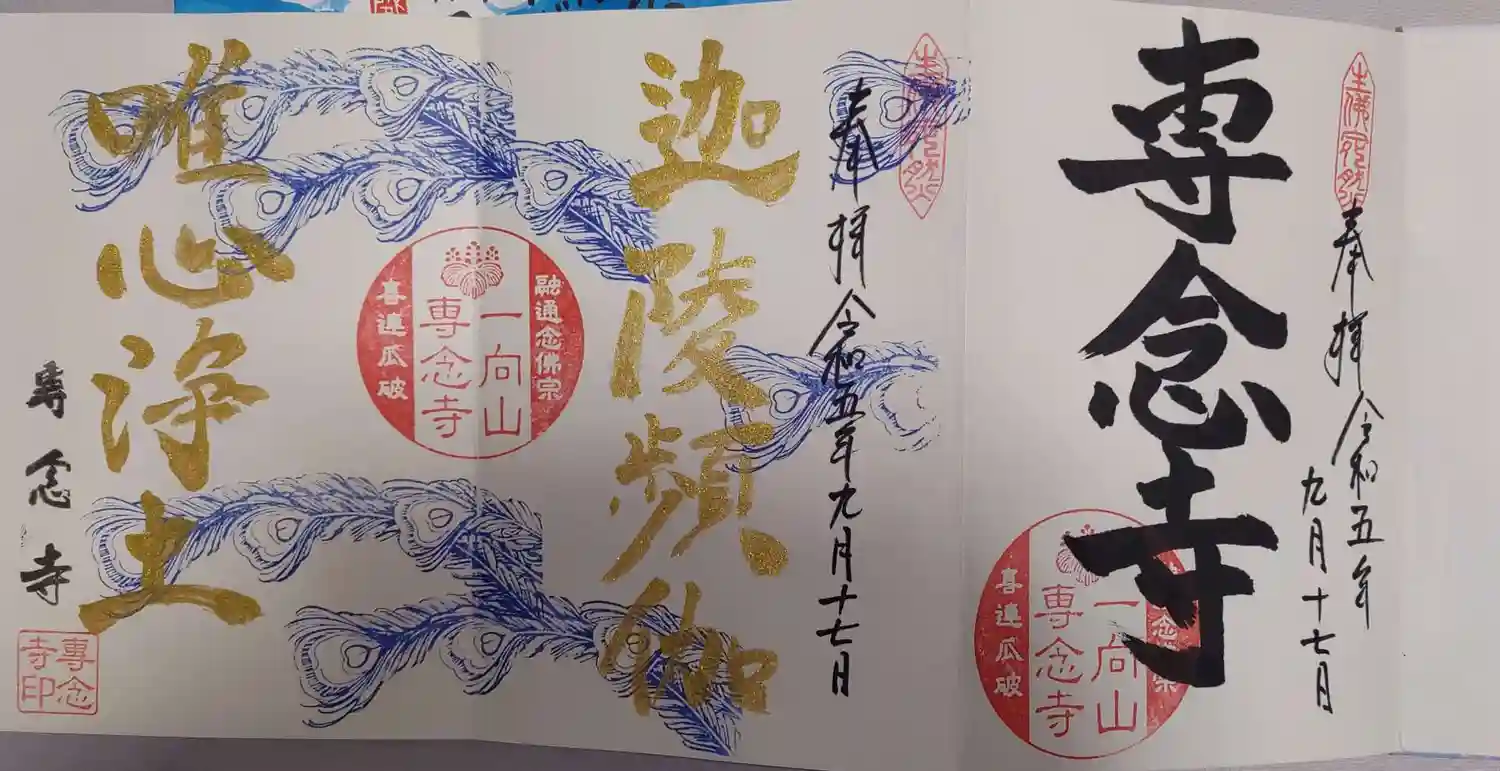 奉拝 令和五年
九月十七日
専念寺
融通念佛宗
一向山
専念寺
喜連瓜破
奉拝 令和五年九月十七日
迦陵頻伽
唯心浄土
融通念佛宗
一向山
専念寺
喜連瓜破
専念寺
専念
寺印